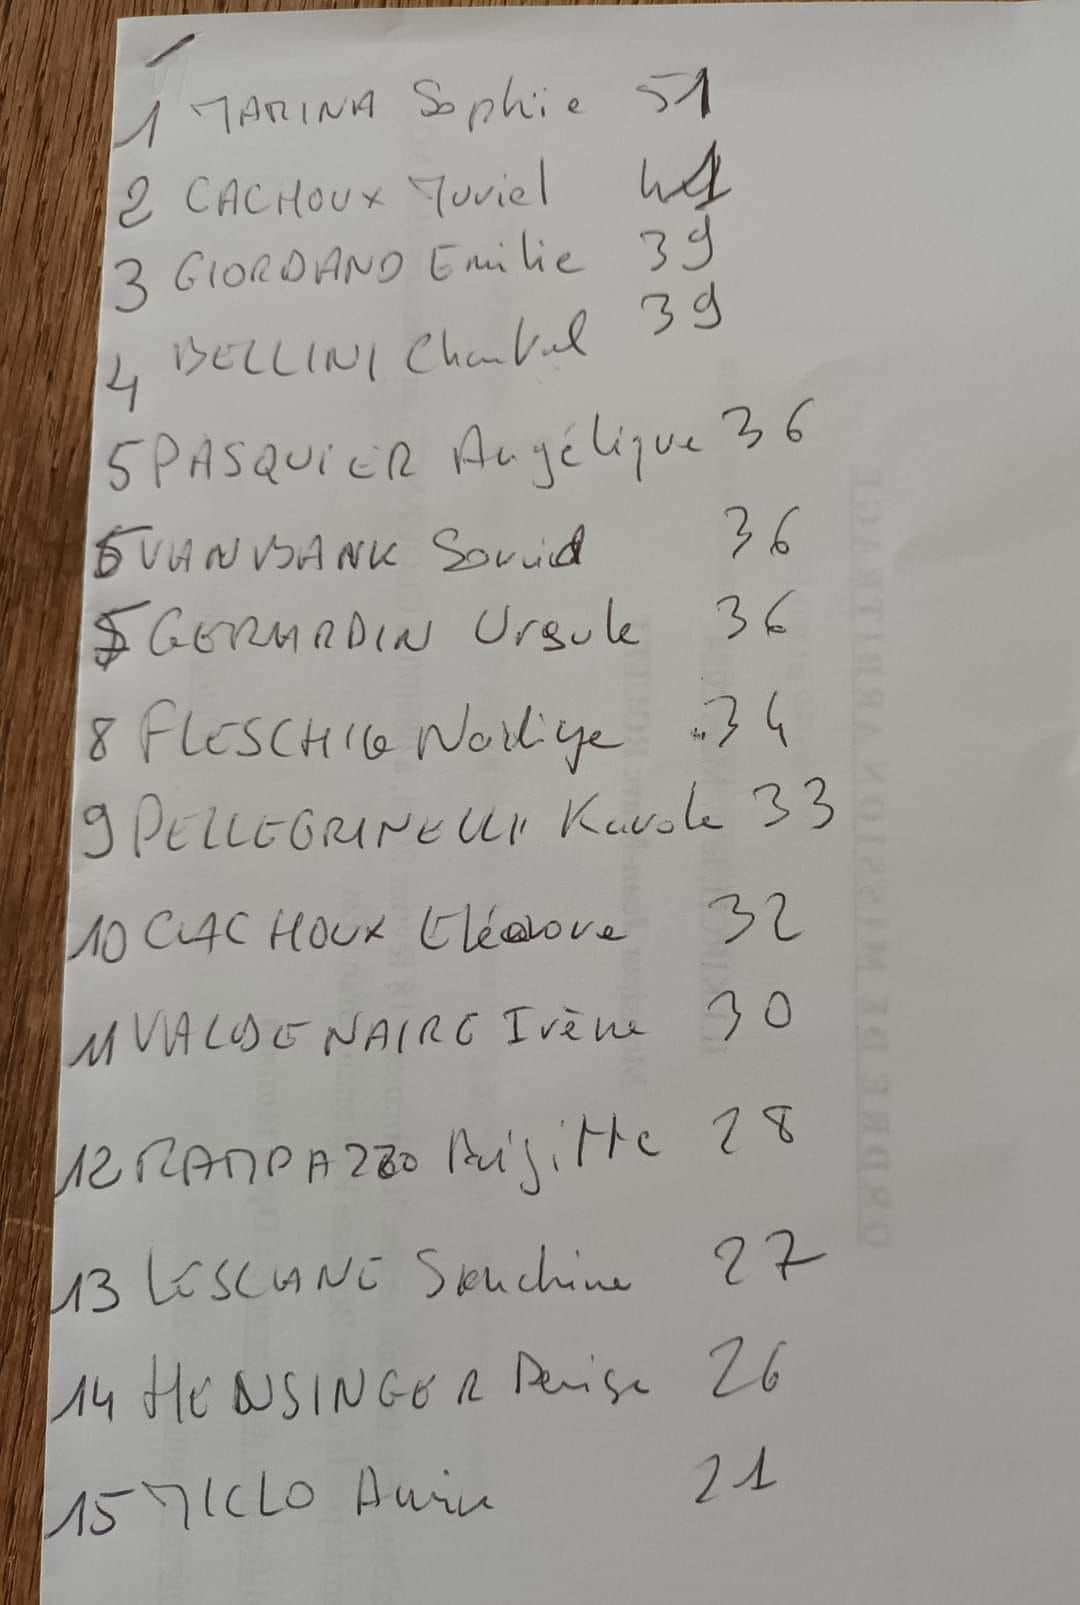 1 MARINA Sophie 51
2 CACHOUX Muriel 41
3 GIORDANO Emilie 39
4 BELLINI Chantal 39
5 PASQUIER Angélique 36
5 VANBANK Souad 36
5 GERARDIN Ursule 36
8 FLESCHIG Nadiye 34
9 PELLEGRINELLI Karole 33
10 CACHOUX Eléonore 32
11 VALDENAIRE Irène 30
12 RAMPAZZO Brigitte 28
13 LESCANE Sanchine 27
14 HENSINGER Denise 26
15 MICLO Annie 21
ORDRE DE MISSION ARBITRAGE